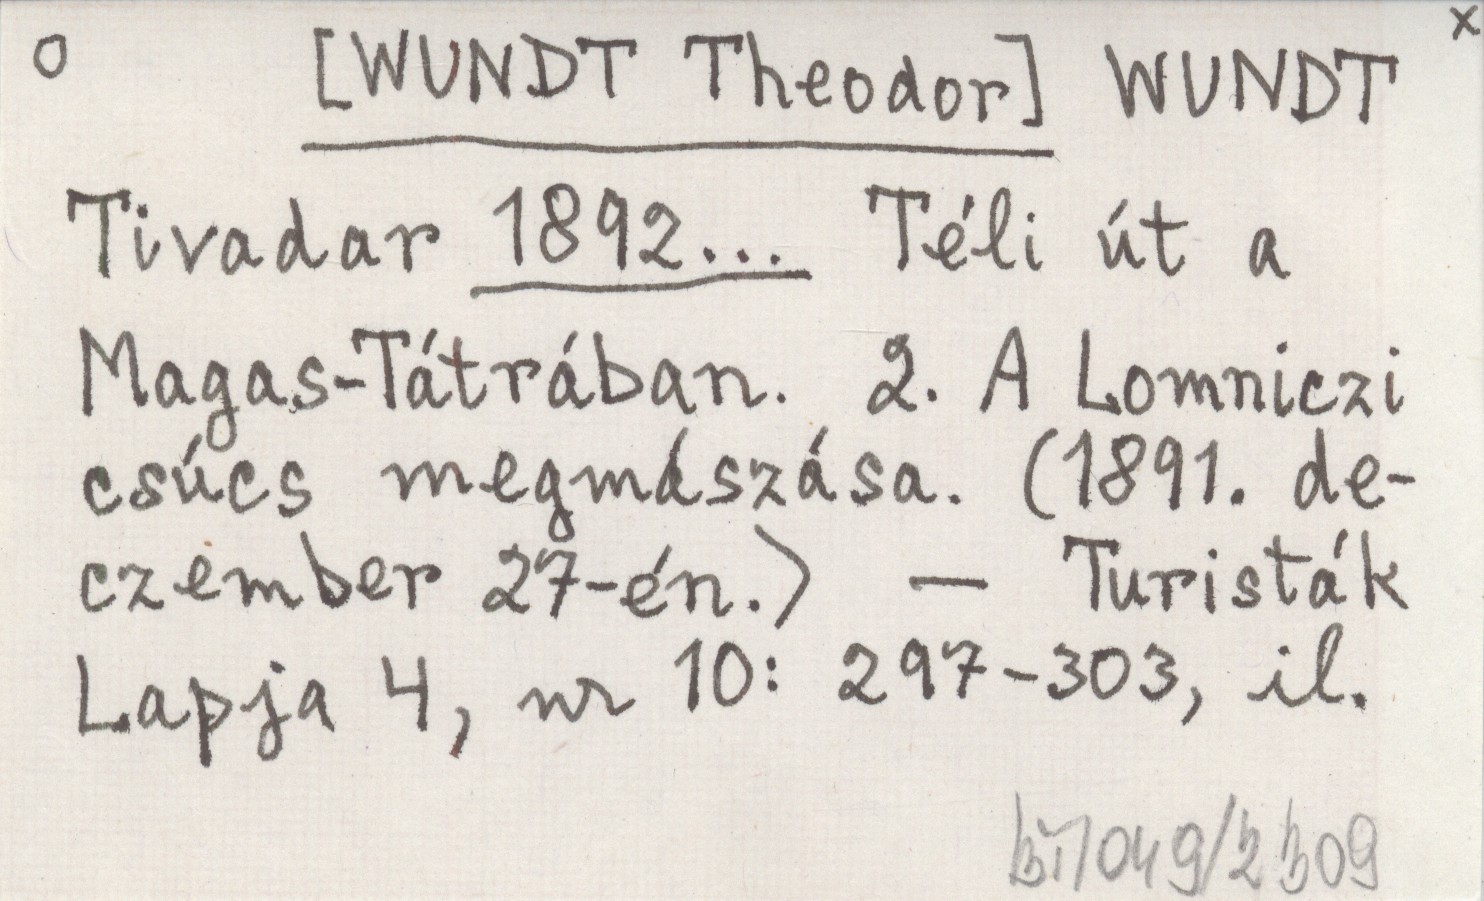 o [WUNDT Theodor] WUNDT x
Tivadar 1892... Téli út a
Magas-Tátrában. 2. A Lomniczi
csúcs megmászása. (1891. de-
czember 27-én.) — Turisták
Lapja 4, nr 10: 297-303, il.